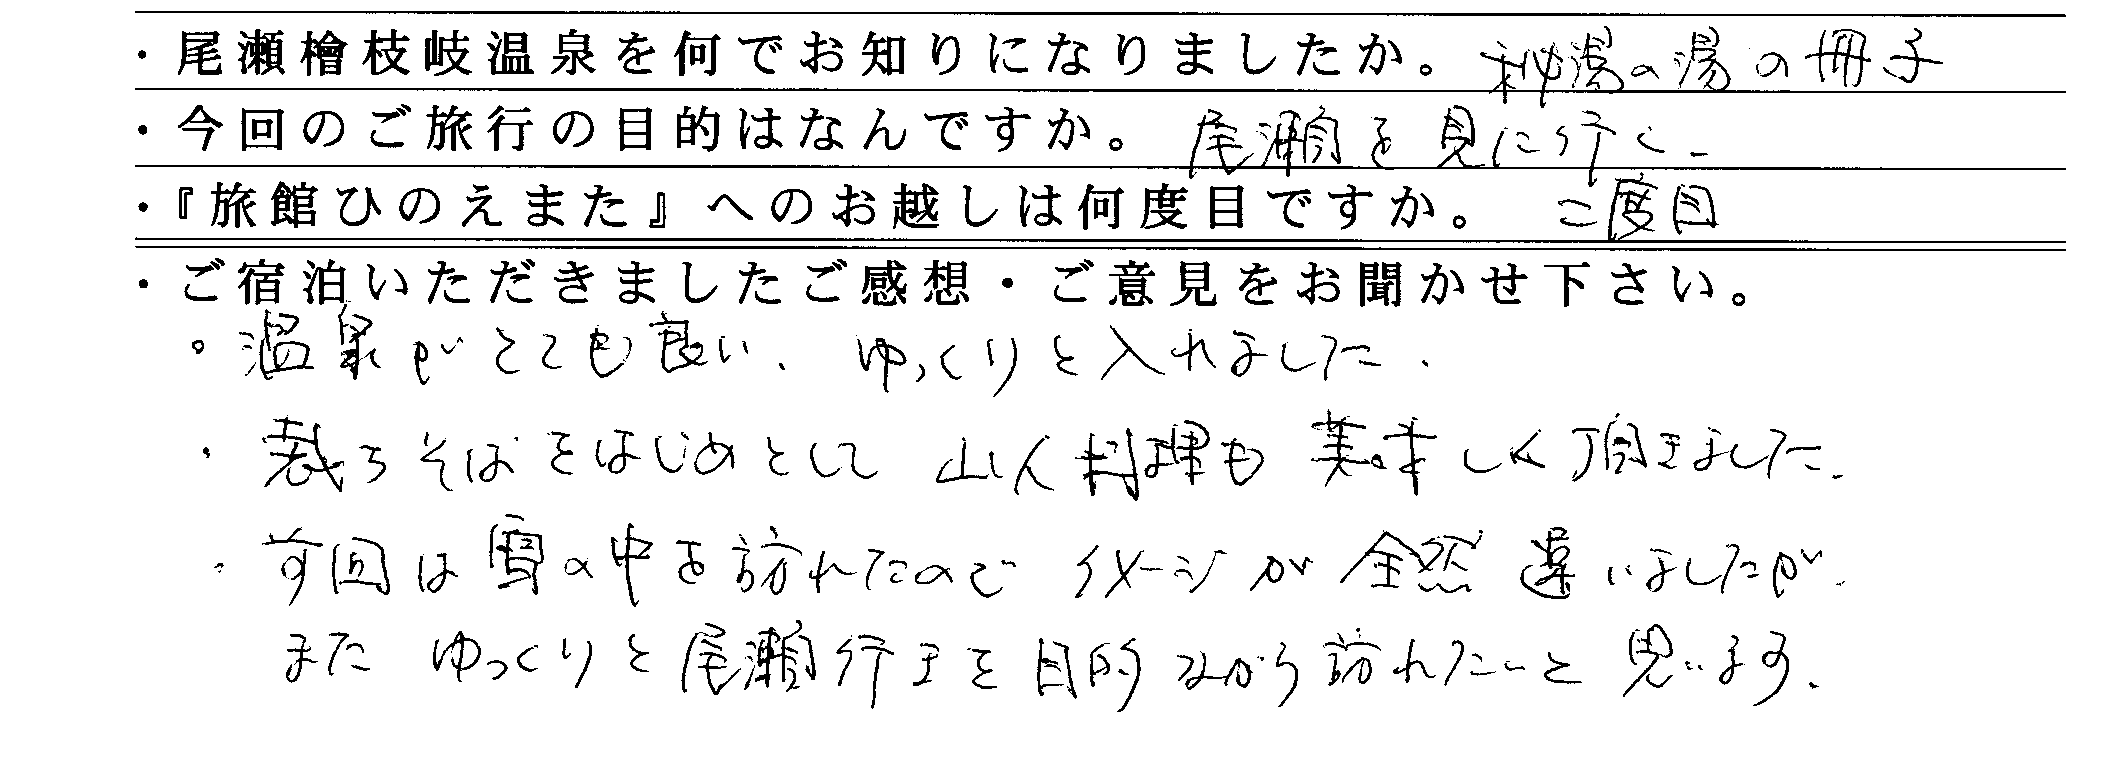 ・尾瀬檜枝岐温泉を何でお知りになりましたか。 秘湯の湯の冊子
・今回のご旅行の目的はなんですか。 尾瀬を見に行く.
・『旅館ひのえまた』へのお越しは何度目ですか。 二度目
・ご宿泊いただきましたご感想・ご意見をお聞かせ下さい。
。温泉がとても良い、ゆっくりと入れました.
・裁ちそばをはじめとして 山人料理も 美味しく頂きました.
・前回は雪の中を訪れたので イメージが 全然 違いましたが.
また ゆっくりと尾瀬行きを目的 ながら訪れたいと 思います.